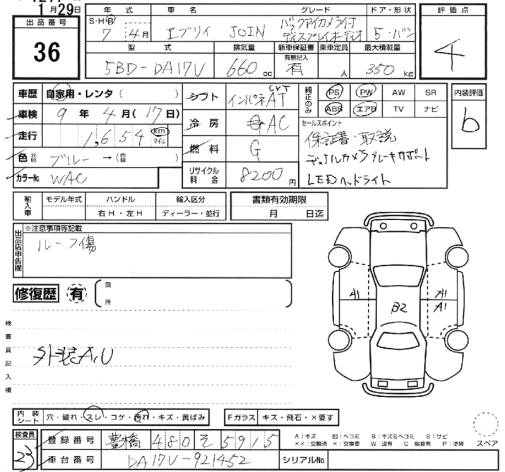 1月29日
出品番号
36
年式 車名 グレード ドア・形状
S・H・R 7年4月 エブリイ JOIN バックアイカメラ付ディスプレイオーディオ 5・バン
型式 排気量 新車保証書 乗車定員 最大積載量
有無記入
5BD-DA17V 660cc 有 人 350kg
評価点
4
車歴 自家用・レンタ( )
車検 9年4月(17日)
走行 1,654 km マイル
色 元色 ブルー→(色 )
カラーNo WAC
シフト インパネCVT AT
冷房 AC
燃料 G
リサイクル料金 8200円
純正のみ
PS PW AW SR
ABS エアB TV ナビ
セールスポイント
保証書・取説
デュアルカメラブレーキサポート
LEDヘッドライト
内装評価
b
輸入車
モデル年式 ハンドル 輸入区分
右H・左H ディーラー・並行
書類有効期限
月 日迄
出品店申告欄
※注意事項等記載
ルーフ傷
修復歴 有
箇所
検査員記入欄
外装A,U
A1
B2
A1
A1
内装シート 穴・破れ・スレ・コゲ・汚れ・キズ・黄ばみ
Fガラス キズ・飛石・×要す
検査員
23
登録番号 豊橋 480 そ 5915
車台番号 DA17V-921452
シリアルNo
A:キズ U:ヘコミ B:キズ&ヘコミ S:サビ
××:交換済 ×:交換要 W:波有 C:腐食 P:塗装
スペア